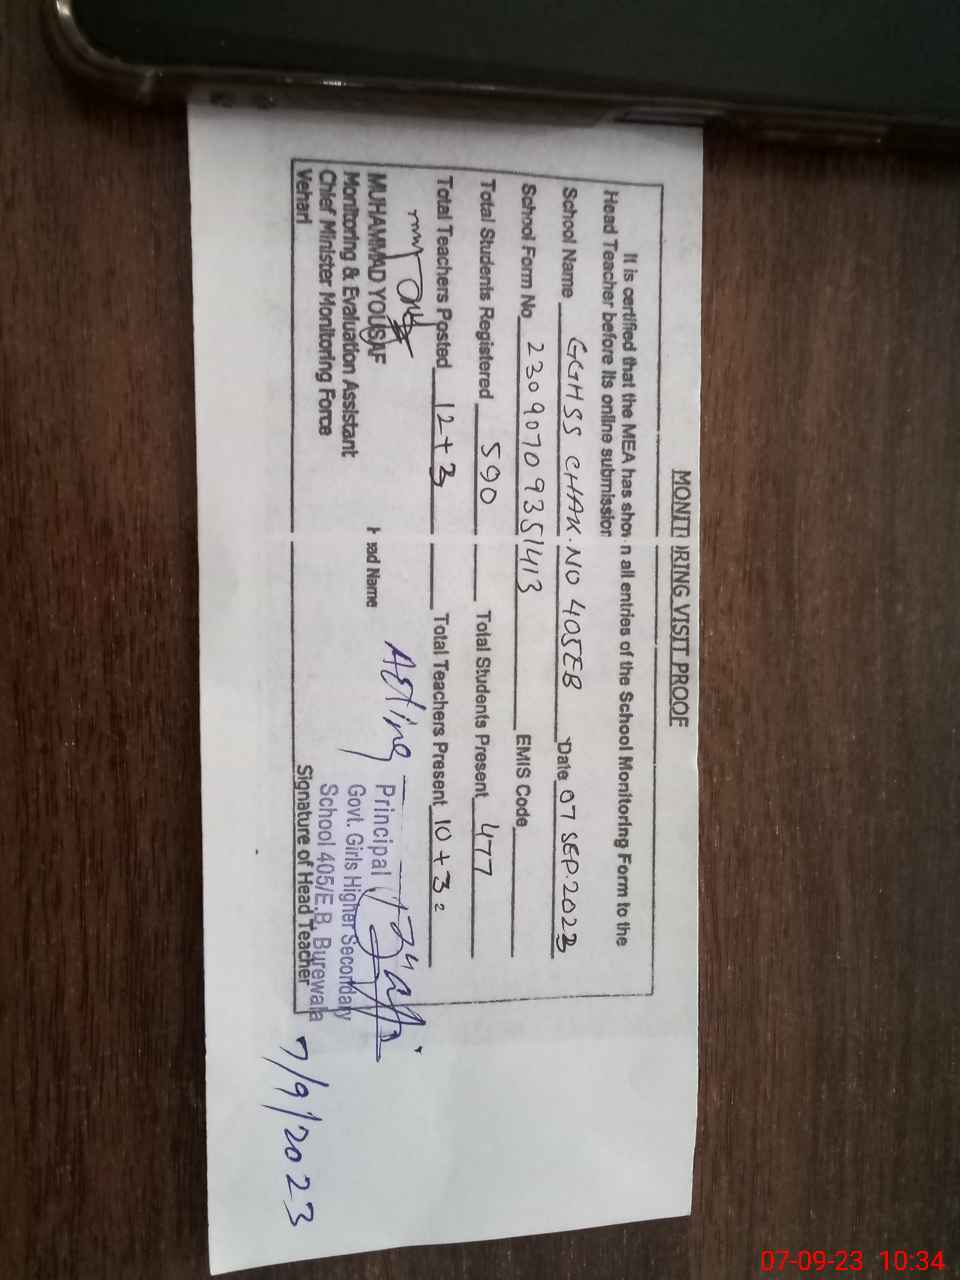 MONITORING VISIT PROOF
It is certified that the MEA has shown all entries of the School Monitoring Form to the
Head Teacher before its online submission
School Name GGHSS CHAK.NO 405EB Date 07 SEP.2023
School Form No 23090709351413 EMIS Code
Total Students Registered 590 Total Students Present 477
Total Teachers Posted 12+3 Total Teachers Present 10+3
MUHAMMAD YOUSAF Head Name
Monitoring & Evaluation Assistant
Chief Minister Monitoring Force
Vehari
Acting Principal
Govt. Girls Higher Secondary
School 405/E.B, Burewala
Signature of Head Teacher
7/9/2023
07-09-23 10:34